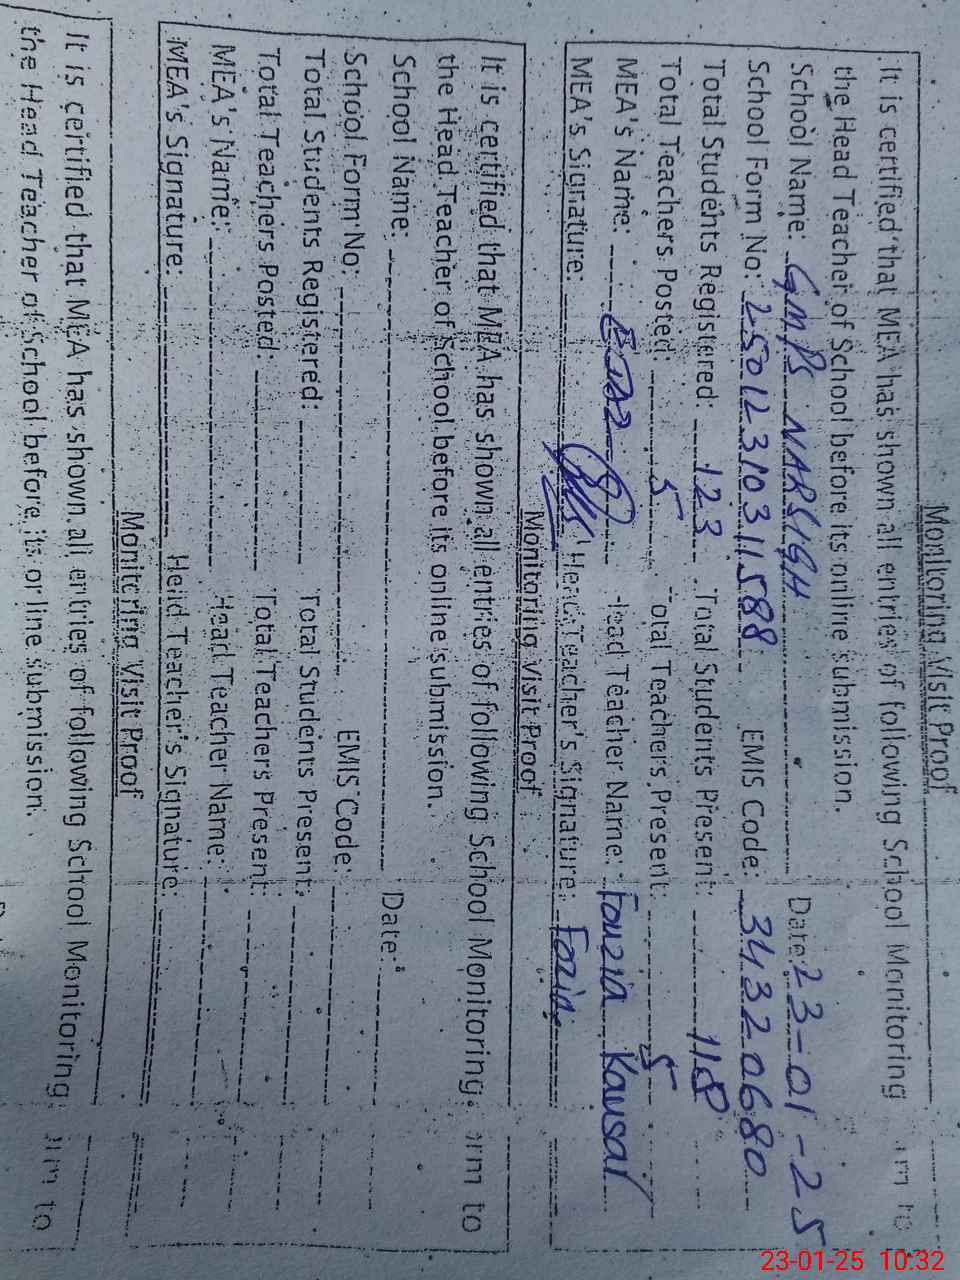 Monitoring Visit Proof
It is certified that MEA has shown all entries of following School Monitoring to
the Head Teacher of School before its online submission.
School Name: GMPS NARSIGH Date: 23-01-25
School Form No: 2501231031 1588 EMIS Code: 34320680
Total Students Registered: 123 Total Students Present: 118
Total Teachers Posted: 5 Total Teachers Present: 5
MEA's Name: Head Teacher Name: Fouzia Kausar
MEA's Signature: Head Teacher's Signature: Fozia
Monitoring Visit Proof
It is certified that MEA has shown all entries of following School Monitoring to
the Head Teacher of School before its online submission.
School Name: Date:
School Form No: EMIS Code:
Total Students Registered: Total Students Present:
Total Teachers Posted: Total Teachers Present:
MEA's Name: Head Teacher Name:
MEA's Signature: Head Teacher's Signature:
Monitoring Visit Proof
It is certified that MEA has shown all entries of following School Monitoring to
the Head Teacher of School before its online submission.
23-01-25 10:32